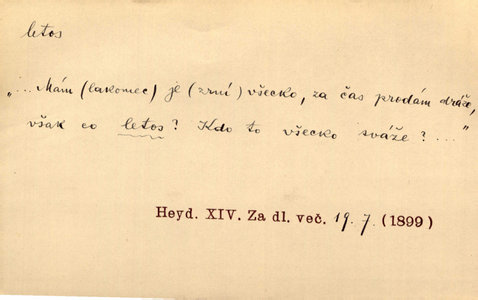 letos
„... Mám (lakomec) je (zrní) všecko, za čas prodám dráže,
však co letos? Kdo to všecko sváže? ..."
Heyd. XIV. Za dl. več. 19. 7. (1899)